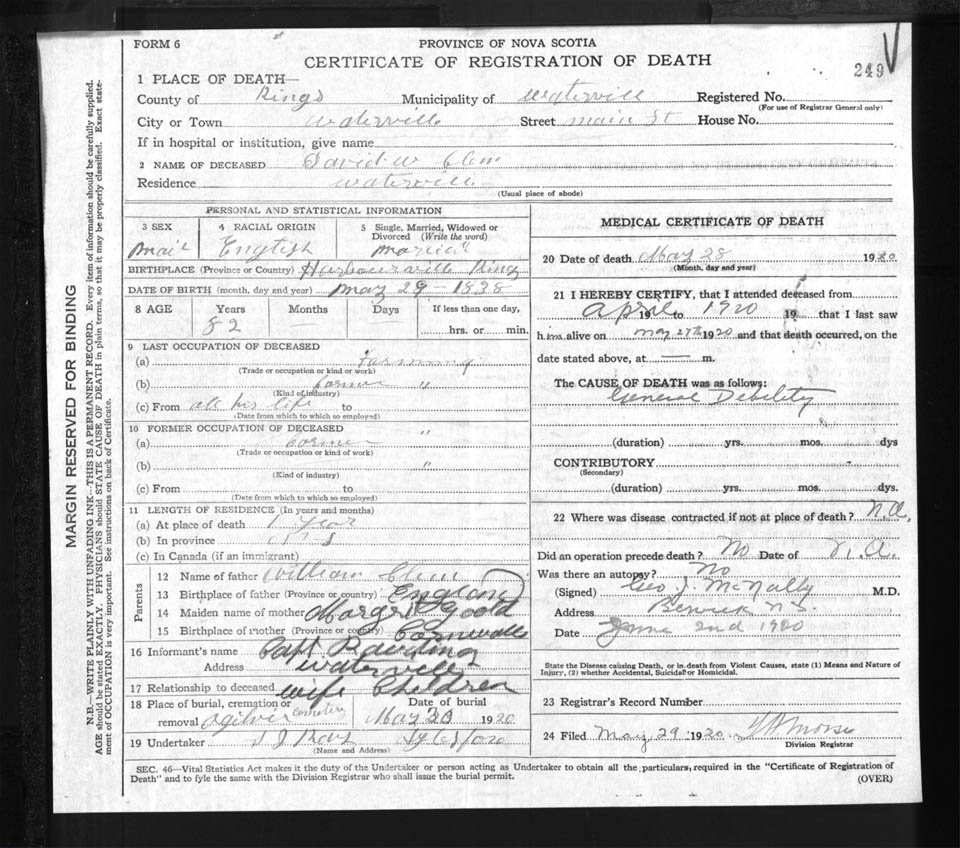 FORM 6
PROVINCE OF NOVA SCOTIA
CERTIFICATE OF REGISTRATION OF DEATH
249
MARGIN RESERVED FOR BINDING
N.B.—WRITE PLAINLY WITH UNFADING INK—THIS IS A PERMANENT RECORD. Every item of information should be carefully supplied.
AGE should be stated EXACTLY. PHYSICIANS should STATE CAUSE OF DEATH in plain terms, so that it may be properly classified. Exact state-
ment of OCCUPATION is very important. See instructions on back of Certificate.
1 PLACE OF DEATH—
County of Kings Municipality of Watervill Registered No.
(For use of Registrar General only)
City or Town Waterville Street main St House No.
If in hospital or institution, give name
2 NAME OF DECEASED David W
Residence Watervill
(Usual place of abode)
PERSONAL AND STATISTICAL INFORMATION
3 SEX 4 RACIAL ORIGIN 5 Single, Married, Widowed or
Divorced (Write the word)
English
BIRTHPLACE (Province or Country) Harbourville Kings
DATE OF BIRTH (month, day and year) May 29 - 1838
8 AGE Years Months Days If less than one day,
82 — — hrs. or min.
9 LAST OCCUPATION OF DECEASED
(a) Farming
(Trade or occupation or kind or work)
(b) farmer "
(Kind of industry)
(c) From all his life to
(Date from which to which so employed)
10 FORMER OCCUPATION OF DECEASED "
(a)
(Trade or occupation or kind of work)
(b) "
(Kind of industry)
(c) From to
(Date from which to which so employed)
11 LENGTH OF RESIDENCE (In years and months)
(a) At place of death 1 year
(b) In province
(c) In Canada (if an immigrant)
Parents
12 Name of father William
13 Birthplace of father (Province or country) England
14 Maiden name of mother Goold
15 Birthplace of mother (Province or country) Cornwallis
16 Informant's name Capt Rawding
Address Waterville
17 Relationship to deceased wife Children
18 Place of burial, cremation or Date of burial
removal Ogilvie Cemetery May 1920
19 Undertaker Aylesford
(Name and Address)
MEDICAL CERTIFICATE OF DEATH
20 Date of death May 28 1920
(Month, day and year)
21 I HEREBY CERTIFY, that I attended deceased from
April 19 to 1920 19 that I last saw
him alive on May 27th 1920 and that death occurred, on the
date stated above, at — m.
The CAUSE OF DEATH was as follows:
General Debility
(duration) yrs. mos. dys
CONTRIBUTORY
(Secondary)
(duration) yrs. mos. dys.
22 Where was disease contracted if not at place of death? N.A.
Did an operation precede death? No Date of N.A.
Was there an autopsy? No
(Signed) Geo J. McNally M.D.
Address Berwick N.S.
Date June 2nd 1920
State the Disease causing Death, or in death from Violent Causes, state (1) Means and Nature of
Injury, (2) whether Accidental, Suicidal or Homicidal.
23 Registrar's Record Number
24 Filed May 29 1920 Morse
Division Registrar
SEC. 46—Vital Statistics Act makes it the duty of the Undertaker or person acting as Undertaker to obtain all the particulars, required in the "Certificate of Registration of
Death" and to fyle the same with the Division Registrar who shall issue the burial permit.
(OVER)